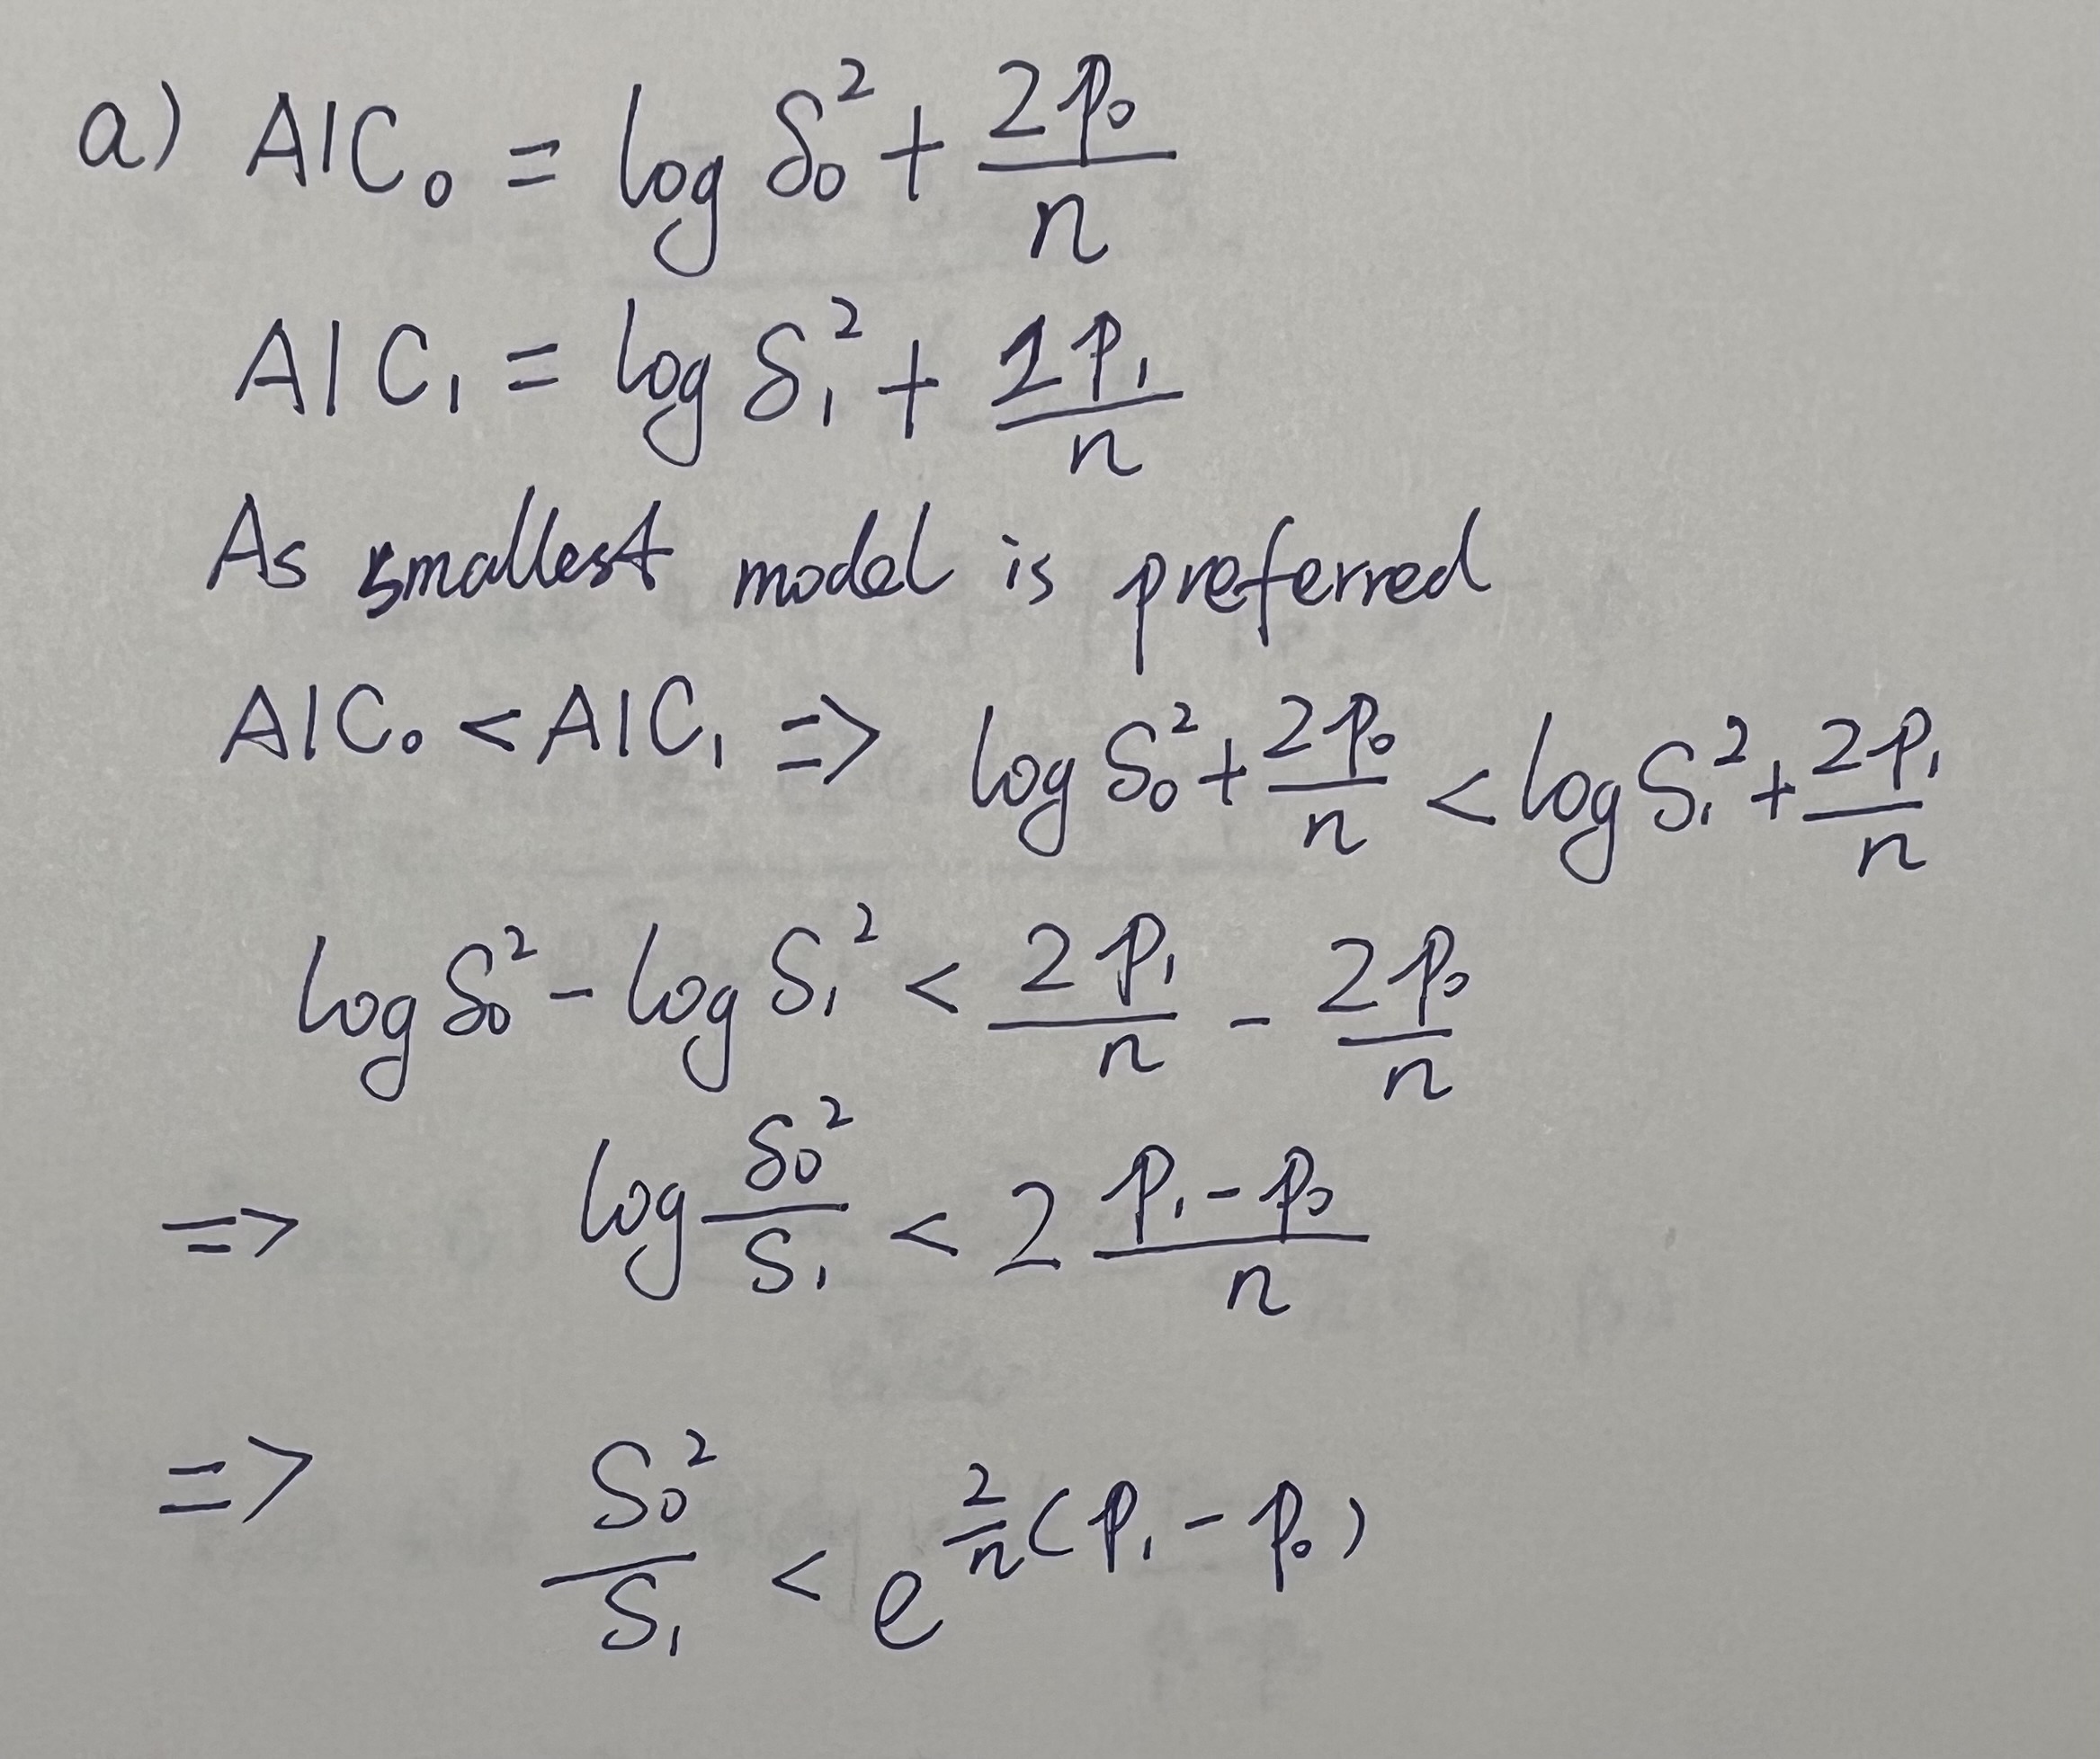 a) AIC₀ = log S₀² + 2p₀/n
AIC₁ = log S₁² + 2p₁/n
As smallest model is preferred
AIC₀ < AIC₁ => log S₀² + 2p₀/n < log S₁² + 2p₁/n
log S₀² - log S₁² < 2p₁/n - 2p₀/n
=> log S₀²/S₁ < 2 (p₁ - p₀)/n
=> S₀²/S₁ < e^(2/n (p₁ - p₀))